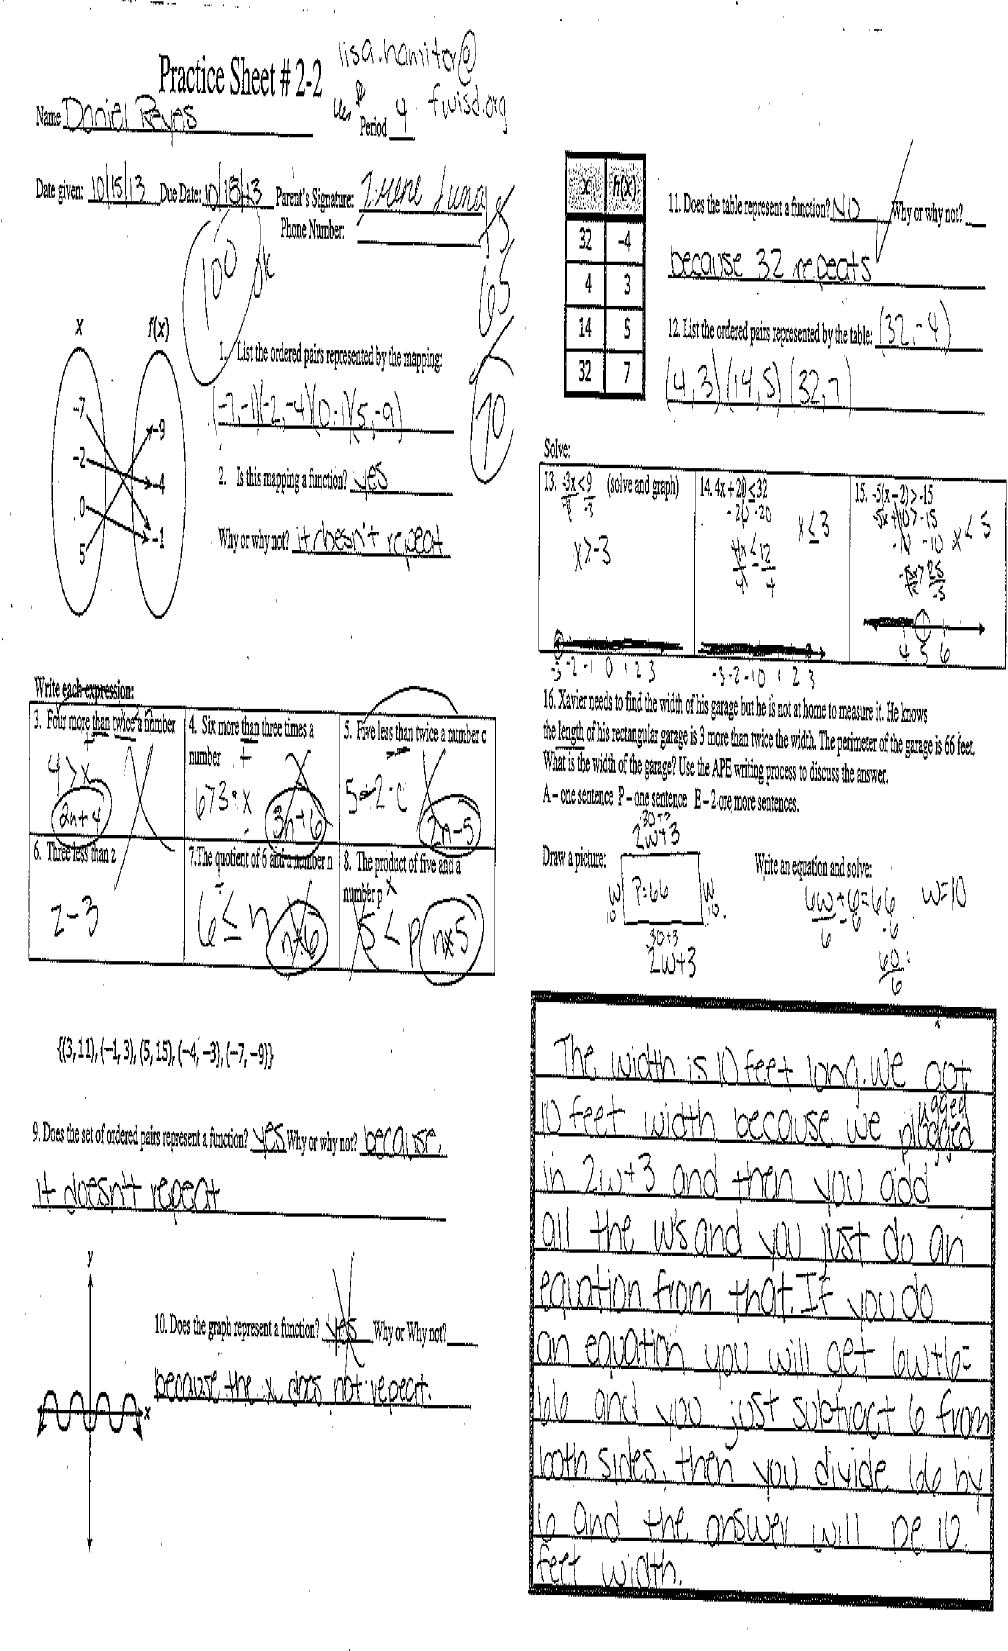 lisa.hamilton@
Practice Sheet # 2-2
fwisd.org
Name Daniel Reyes
Period 4
Date given: 10/15/13 Due Date: 10/15/13 Parent's Signature:
Phone Number:
100
65
70
x f(x)
-7 -9
-2 -4
0 -1
5
1. List the ordered pairs represented by the mapping:
(-7,-1)(-2,-4)(0,-1)(5,-9)
2. Is this mapping a function? yes
Why or why not? it doesn't repeat
Write each expression:
3. Four more than twice a number
4 > x
2n+4
4. Six more than three times a
number
3n+6
5. Five less than twice a number c
2n-5
6. Three less than z
z-3
7. The quotient of 6 and a number n
6 ≤ n
n÷6
8. The product of five and a
number p
5 < p
n×5
{(3, 11), (-1, 3), (5, 15), (-4, -3), (-7, -9)}
9. Does the set of ordered pairs represent a function? yes Why or why not? because
it doesn't repeat
y
x
10. Does the graph represent a function? yes Why or Why not?
because the x does not repeat.
x h(x)
32 -4
4 3
14 5
32 7
11. Does the table represent a function? NO Why or why not?
because 32 repeats
12. List the ordered pairs represented by the table: (32,-4)
(4,3)(14,5)(32,7)
Solve:
13. -3x < 9 (solve and graph)
x > -3
-3 -2 -1 0 1 2 3
14. 4x + 20 ≤ 32
-20 -20
4x ≤ 12
4 4
x ≤ 3
-3 -2 -1 0 1 2 3
15. -5(x - 2) > -15
-5x+10 > -15
-10 -10
x < 5
4 5 6
16. Xavier needs to find the width of his garage but he is not at home to measure it. He knows
the length of his rectangular garage is 3 more than twice the width. The perimeter of the garage is 66 feet.
What is the width of the garage? Use the APE writing process to discuss the answer.
A – one sentence P – one sentence E – 2 or more sentences.
Draw a picture:
2w+3
W P=66 W
10 10
2w+3
Write an equation and solve:
6w+6=66
w=10
60
6
The width is 10 feet long. We got
10 feet width because we plugged
in 2w+3 and then you add
all the w's and you just do an
equation from that. If you do
an equation you will get 6w+6=
66 and you just subtract 6 from
both sides, then you divide 66 by
6 and the answer will be 10
feet width.